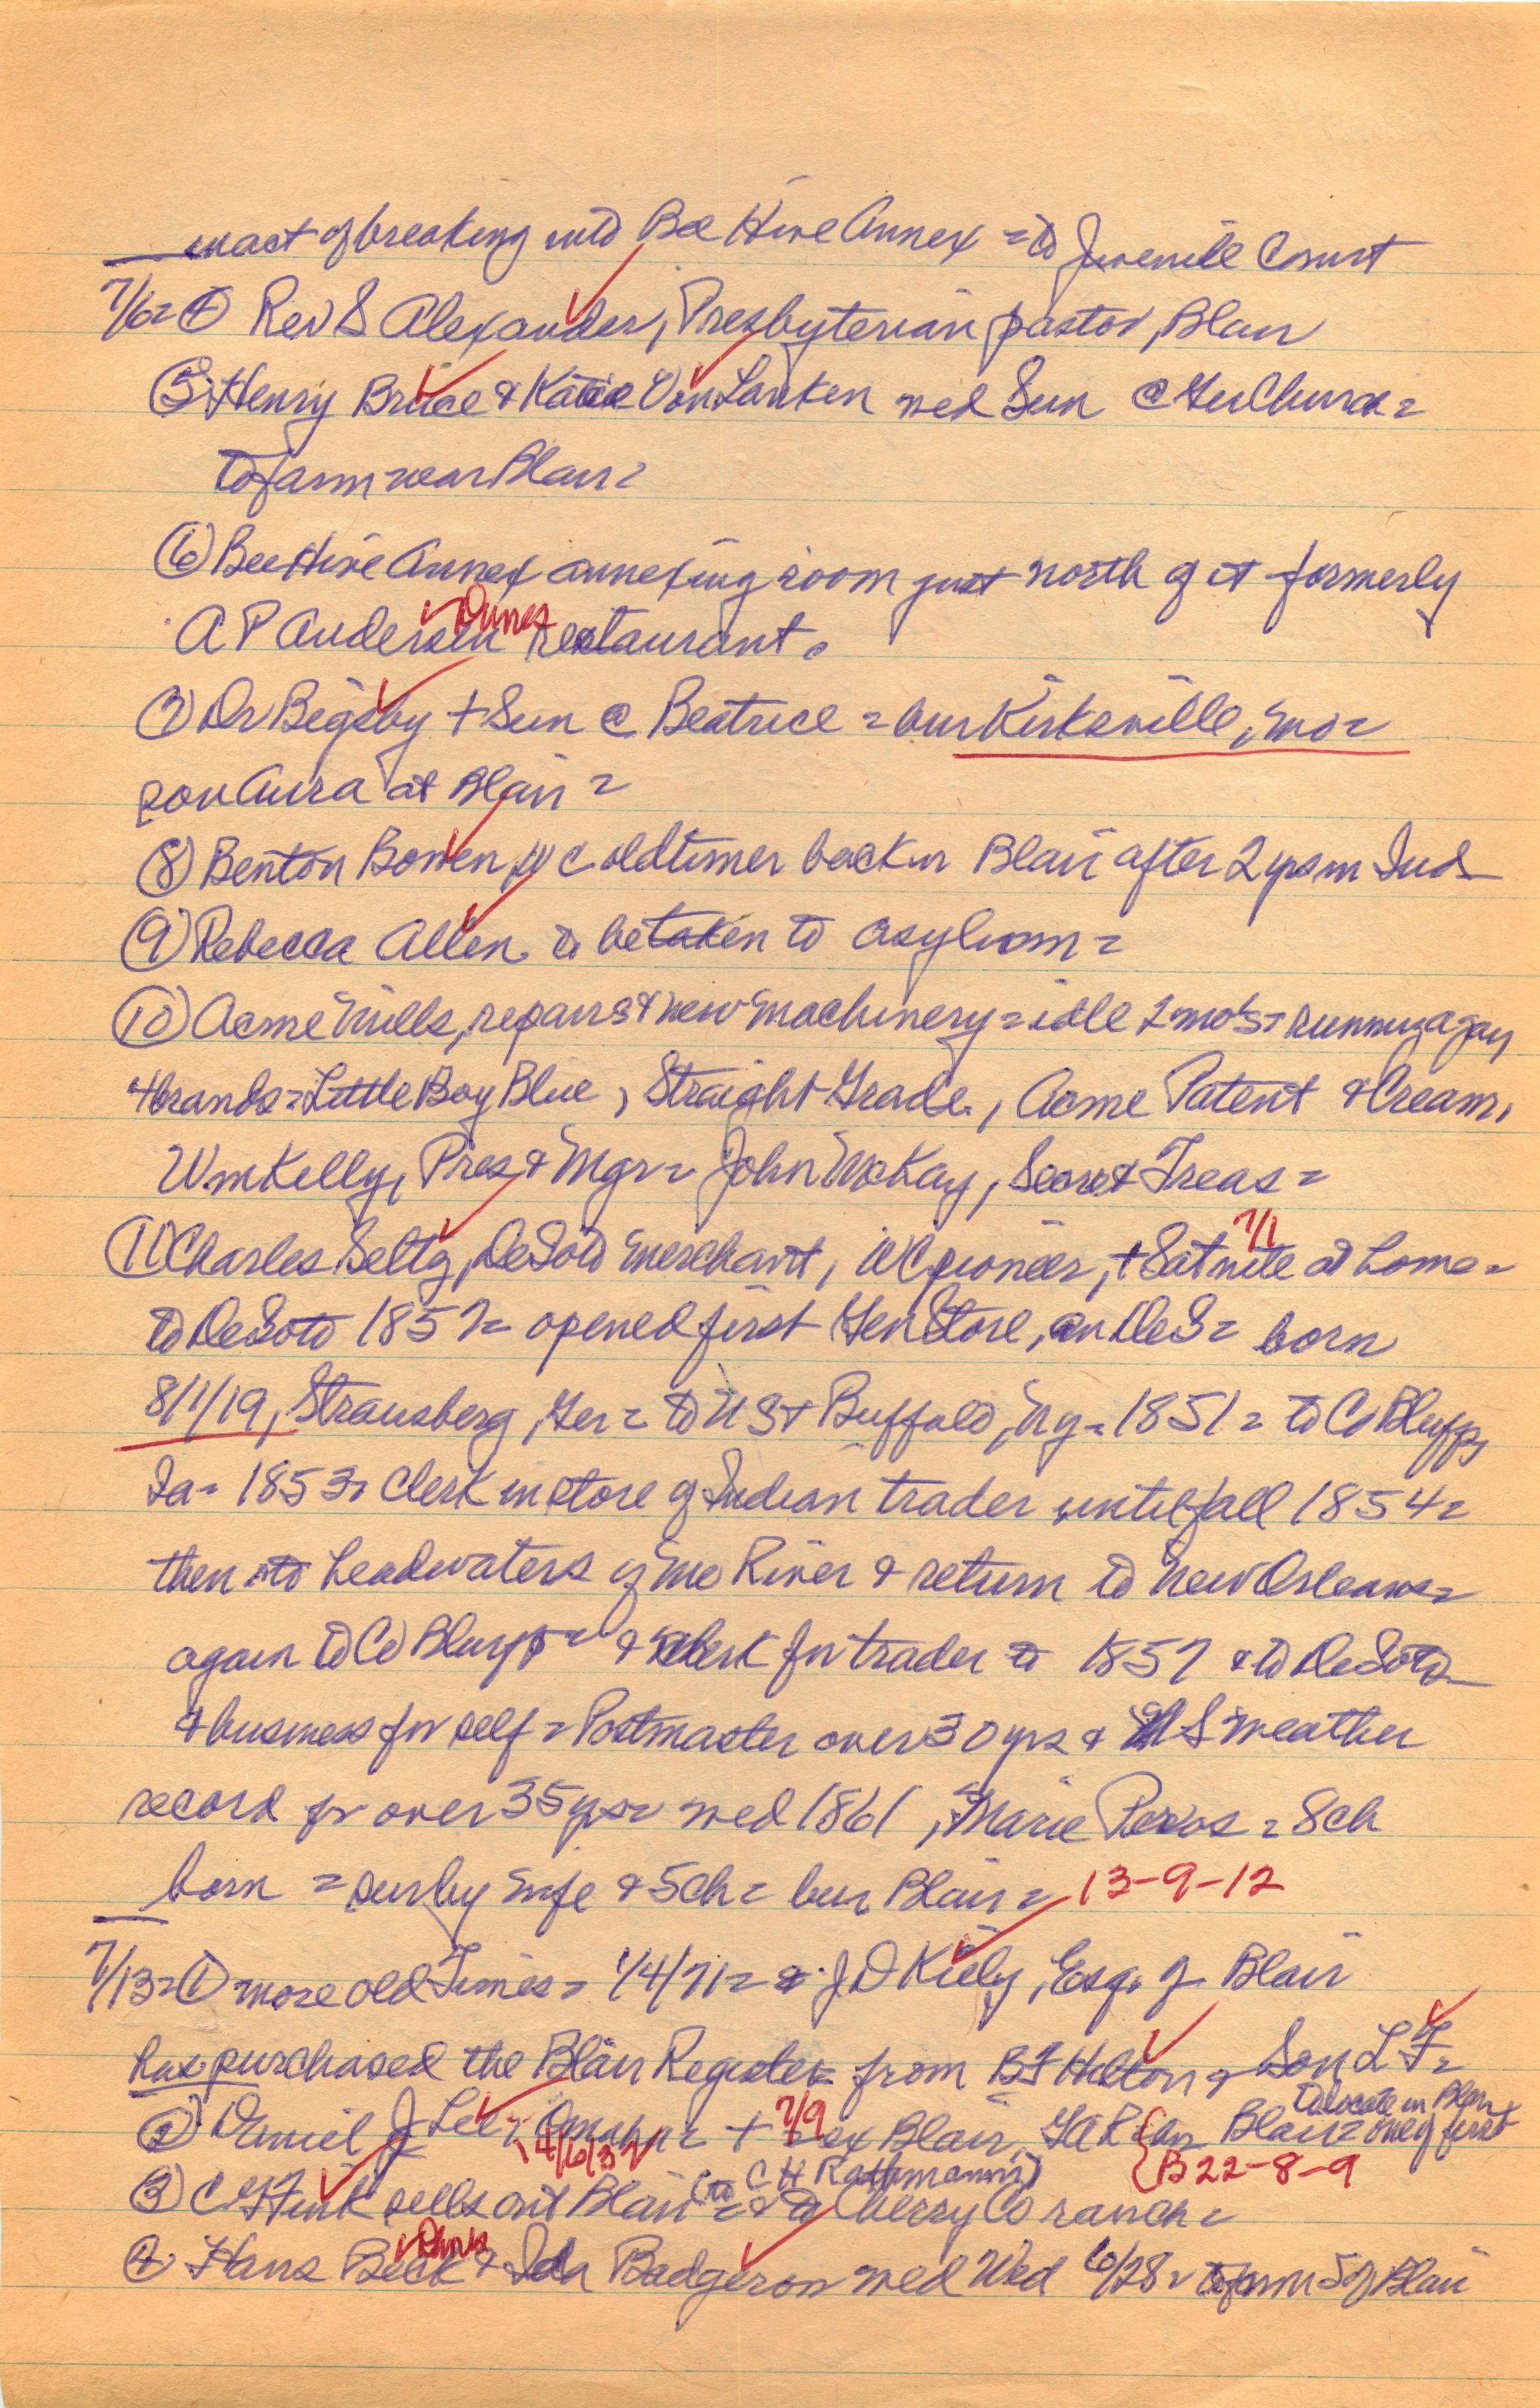 in act of breaking into Bee Hive Annex = to Juvenile Court
7/6= ④ Rev S Alexander, Presbyterian pastor, Blair
⑤ Henry Bruce & Katie Von Lanken wed Sun @ Ger Church =
to farm near Blair =
⑥ Bee Hive Annex annexing room just north of it formerly
A P Andersen Dunes restaurant.
⑦ Dr Bigsby + Sun @ Beatrice = bur Kirksville, Mo =
at Blair =
⑧ Benton Bowen, W C oldtimer back in Blair after 2 yrs in Ind
⑨ Rebecca Allen to be taken to asylum =
⑩ Acme Mills, repairs & new machinery = idle 2 mo's = running again
4 brands = Little Boy Blue, Straight Grade, Acme Patent & Cream,
Wm Kelly, Pres & Mgr = John McKay, Secre & Treas =
⑪ Charles Seltz, DeSoto merchant, W C pioneer, + Sat nite 7/1 at home =
to DeSoto 1857 = opened first Gen Store, in DeS = born
8/1/19, Strausberg, Ger = to U S & Buffalo, Ny = 1851 = to Co Bluffs,
Ia = 1853 = clerk in store of Indian trader until fall 1854 =
then to headwaters of Mo River & return to New Orleans =
again to Co Bluffs = & clerk for trader to 1857 & to DeSoto
& business for self = Postmaster over 30 yrs & U S weather
record for over 35 yrs = wed 1861, Marie = 8 ch
born = sur by wife & 5 ch = bur Blair = 13-9-12
7/13= ① more old Times = 1/4/71 = J D Kiely, Esq. of Blair
has purchased the Blair Register from B F Hilton & Son L F =
to locate in Blair
② Daniel J Lee, Omaha = + 7/9 = ex Blair, GAR = bur Blair = one of first
4/6/32 (to C H Rathmann) B 22-8-9
③ C G Fink sells out Blair = & to Cherry Co ranch =
④ Hans Beck Dunes & Ida Badgerow wed Wed 6/28 = to farm S of Blair